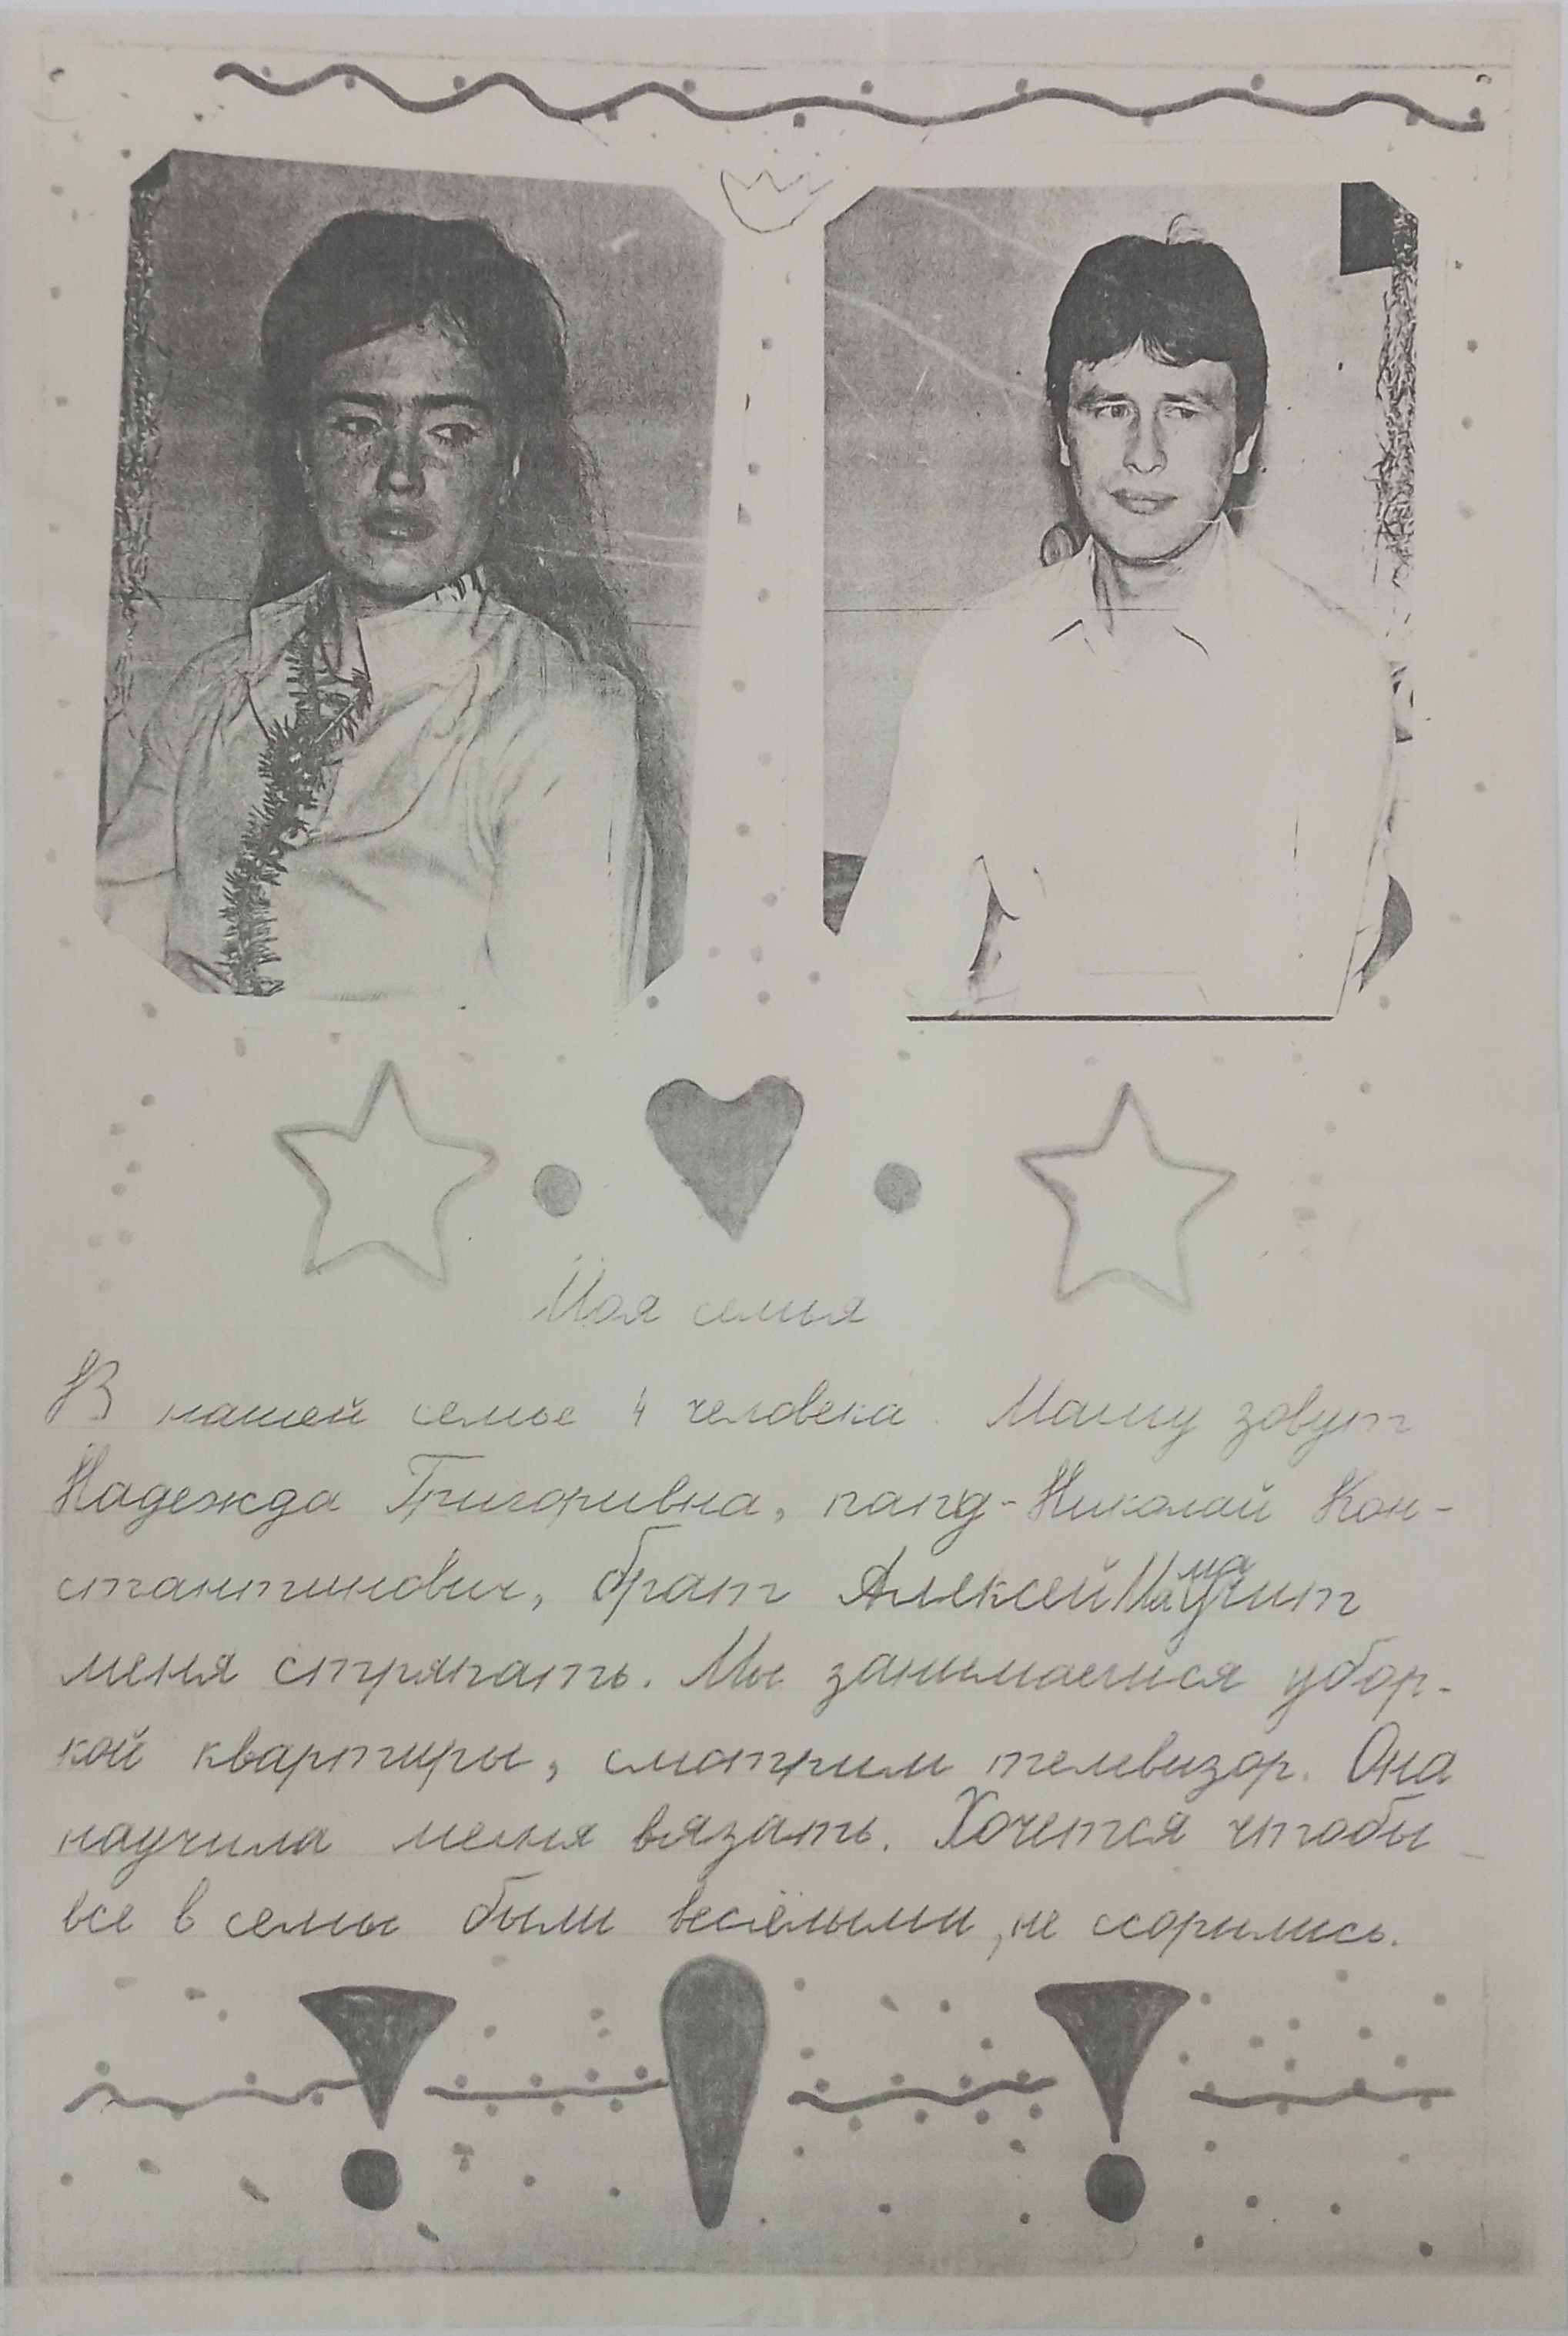 Моя семья
В нашей семье 4 человека. Маму зовут
Надежда Григоривна, папу-Николай Кон-
стантинович, брат Алексей Мама учит
меня стряпать. Мы занимаемся убор-
кой квартиры, смотрим телевизор. Она
научила меня вязать. Хочется чтобы
все в семье были весёлыми, не ссорились.